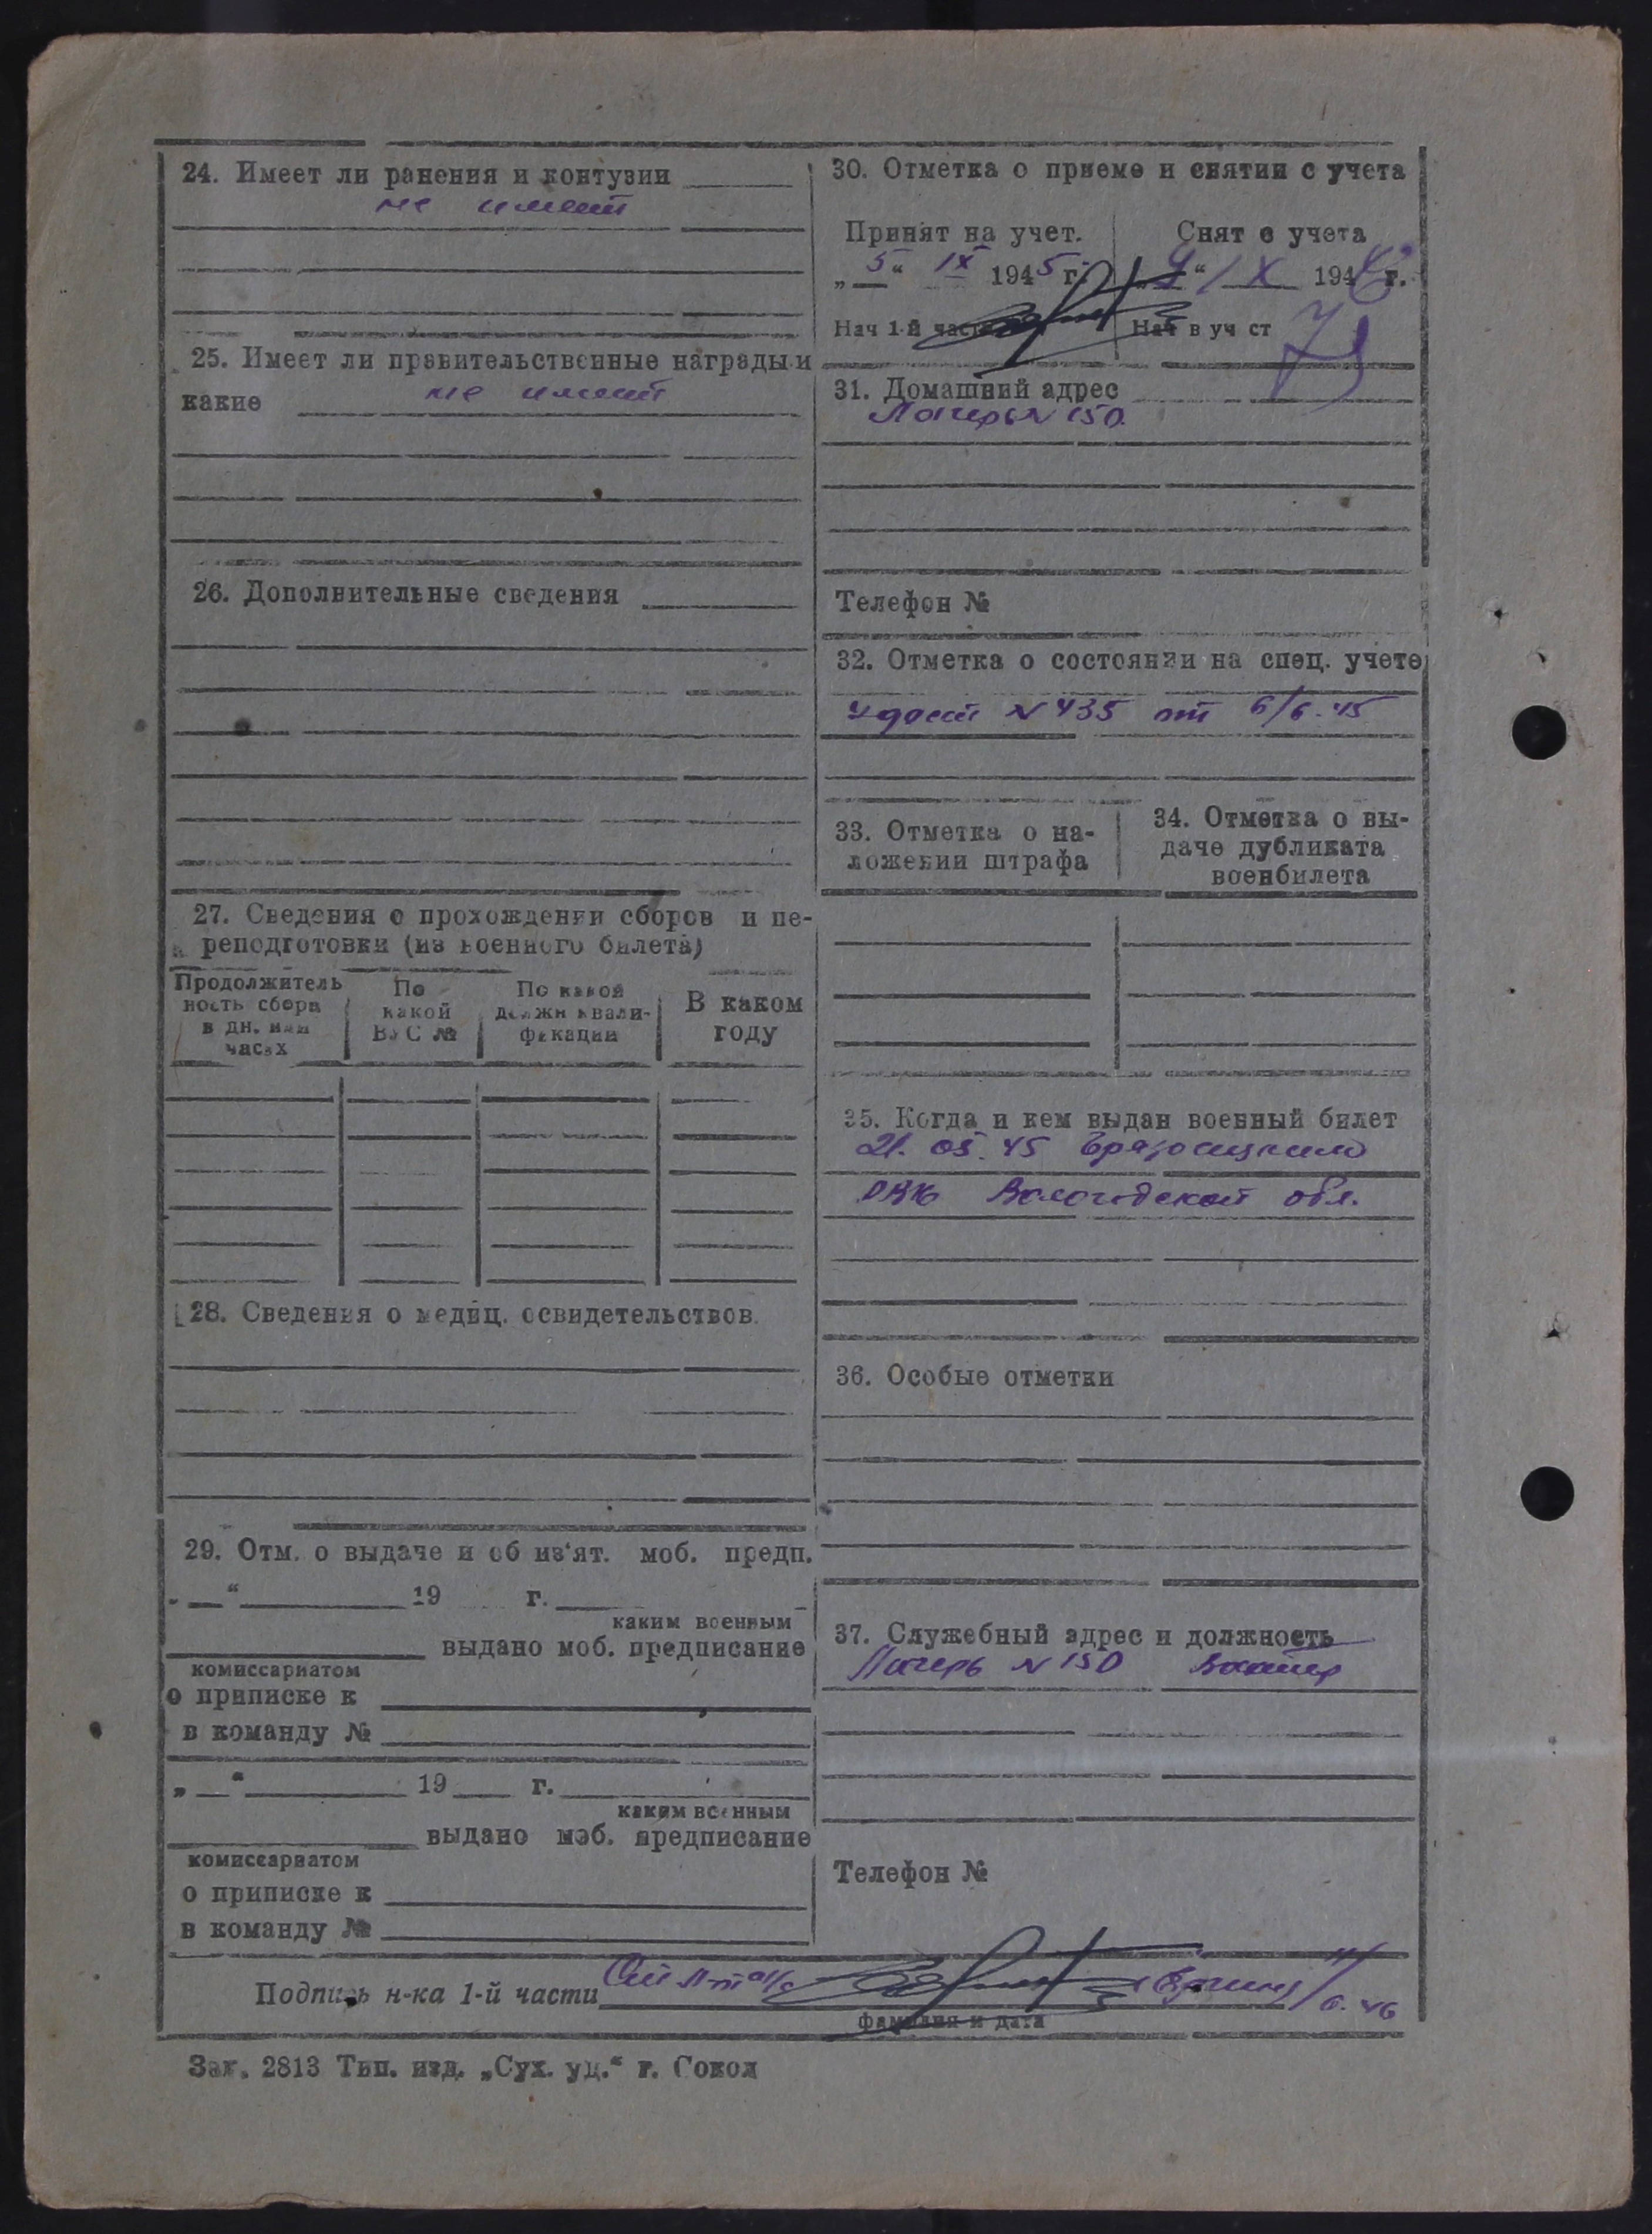 24. Имеет ли ранения и контузии
не имеет
25. Имеет ли правительственные награды и
какие не имеет
26. Дополнительные сведения
27. Сведения о прохождении сборов и пе-
реподготовки (из военного билета)
Продолжитель
ность сбора
в дн. или
часах
По
какой
ВУС №
По какой
должн квали-
фикации
В каком
году
28. Сведения о медиц. освидетельствов.
29. Отм. о выдаче и об из‘ят. моб. предп.
„ “ 19 г.
каким военным
выдано моб. предписание
комиссариатом
о приписке к
в команду №
„ “ 19 г.
каким военным
выдано моб. предписание
комиссариатом
о приписке к
в команду №
30. Отметка о приеме и снятии с учета
Принят на учет.
„5“ IX 1945 г.
Нач 1-й части
Снят с учета
„ “ 194 г.
Нач в уч ст
31. Домашний адрес
Лагерь N 150.
Телефон №
32. Отметка о состоянии на спец. учете
Удост N 435 от 6/6.45
33. Отметка о на-
ложении штрафа
34. Отметка о вы-
даче дубликата
военбилета
35. Когда и кем выдан военный билет
21. 05. 45 Грязовецким
РВК Вологодской обл.
36. Особые отметки
37. Служебный адрес и должность
Лагерь N 150 Вахтер
Телефон №
Подпись н-ка 1-й части Ст Л-т а/с
фамилия и дата
Зак. 2813 Тип. изд. „Сух. уд.“ г. Сокол